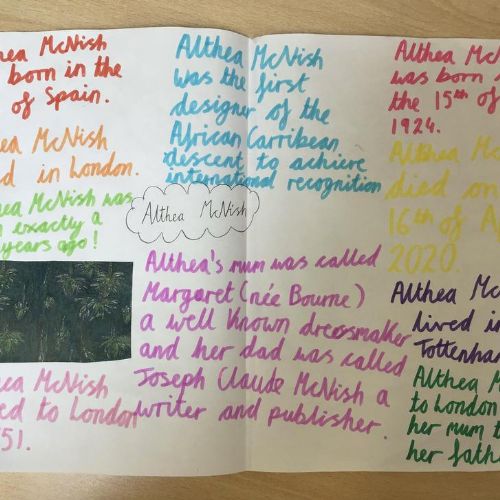 hea McNish
born in the
of Spain.
ea McNish
d in London.
ea McNish was
n exactly a
years ago!
ea McNish
ed to London
51.
Althea McNish
was the first
designer of the
African Carribean
descent to achieve
international recognition
Althea McNish
Althea's mum was called
Margaret (née Bourne)
a well known dressmaker
and her dad was called
Joseph Claude McNish a
writer and publisher.
Althea Mc
was born
the 15th of
1924.
Althea Mc
died on
16th of A
2020.
Althea Mc
lived in
Tottenha
Althea M
to London
her mum t
her fath